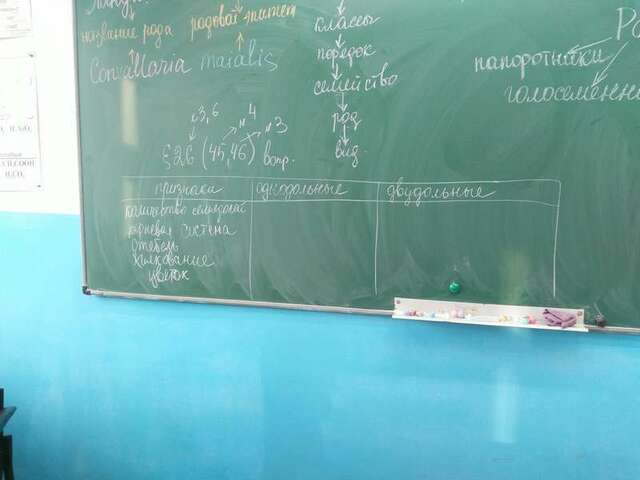 название рода родовой эпитет
Convallaria maialis
классы
порядок
семейство
род
вид
папоротники
голосеменн
3,6 4 3
§26 (45,46) вопр.
признаки однодольные двудольные
количество семядолей
корневая система
стебель
жилкование
цветок